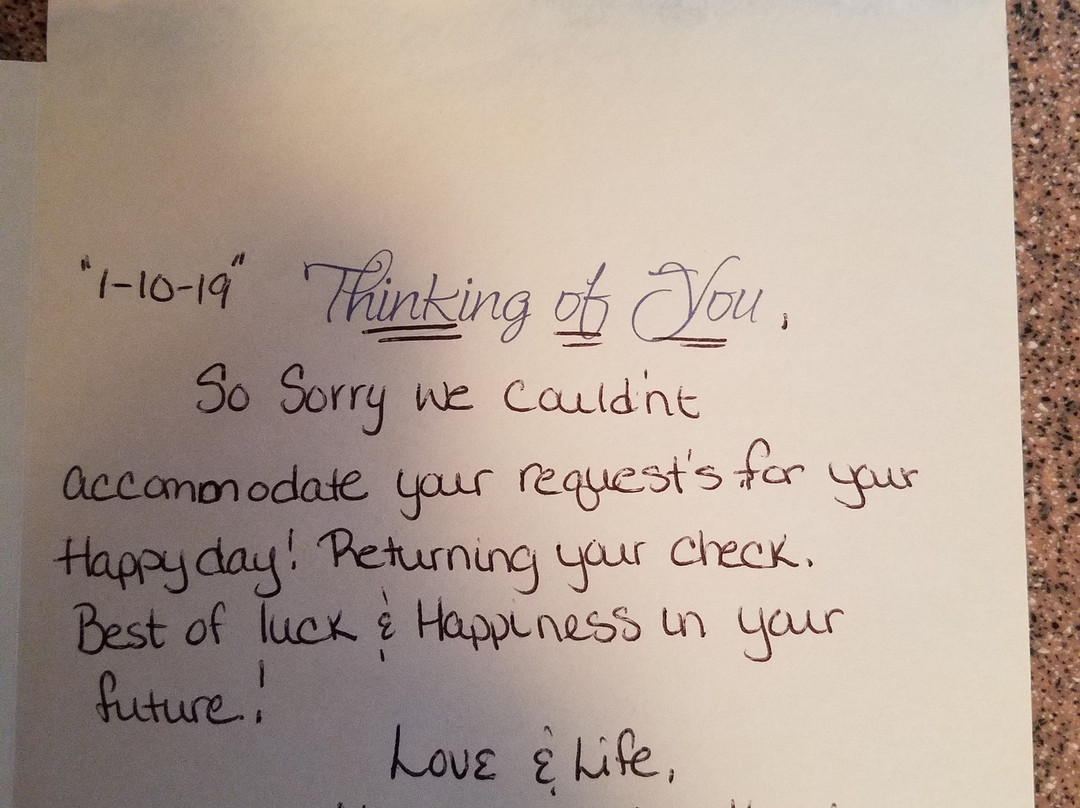 "1-10-19" Thinking of You,
So Sorry we Could'nt
accommodate your request's for your
Happy day! Returning your check.
Best of luck & Happiness in your
future!
Love & Life,